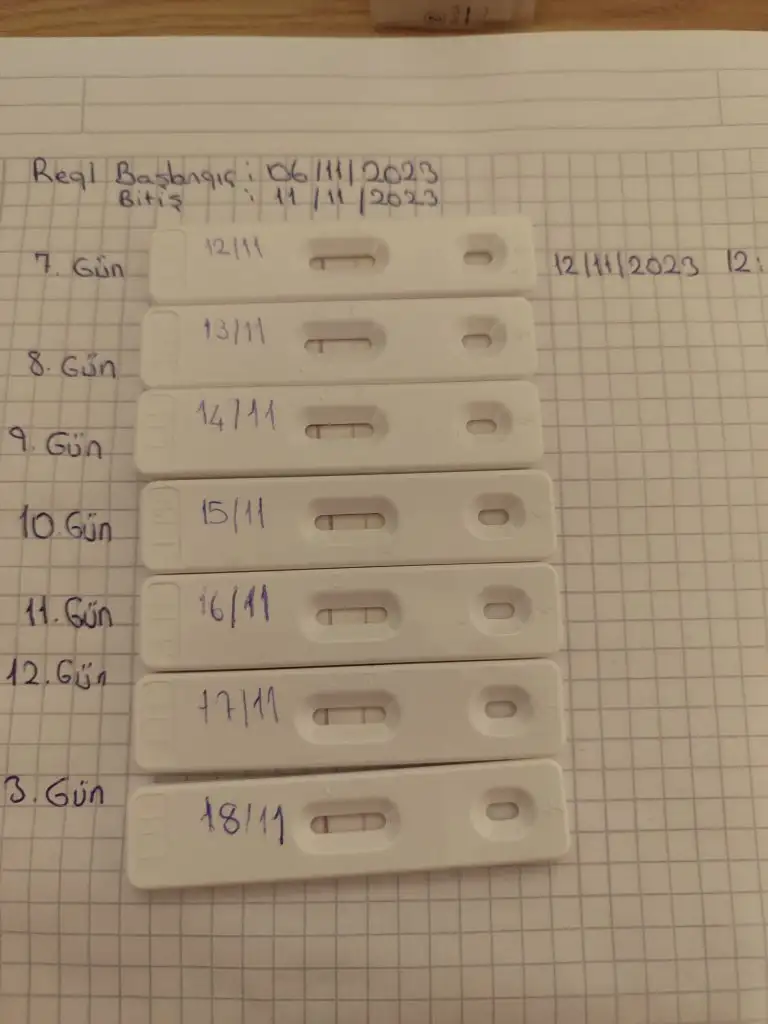 Regl Başlangıç : 06/11/2023
Bitiş : 11/11/2023
7. Gün 12/11 12/11/2023 12:
8. Gün 13/11
9. Gün 14/11
10. Gün 15/11
11. Gün 16/11
12. Gün 17/11
3. Gün 18/11